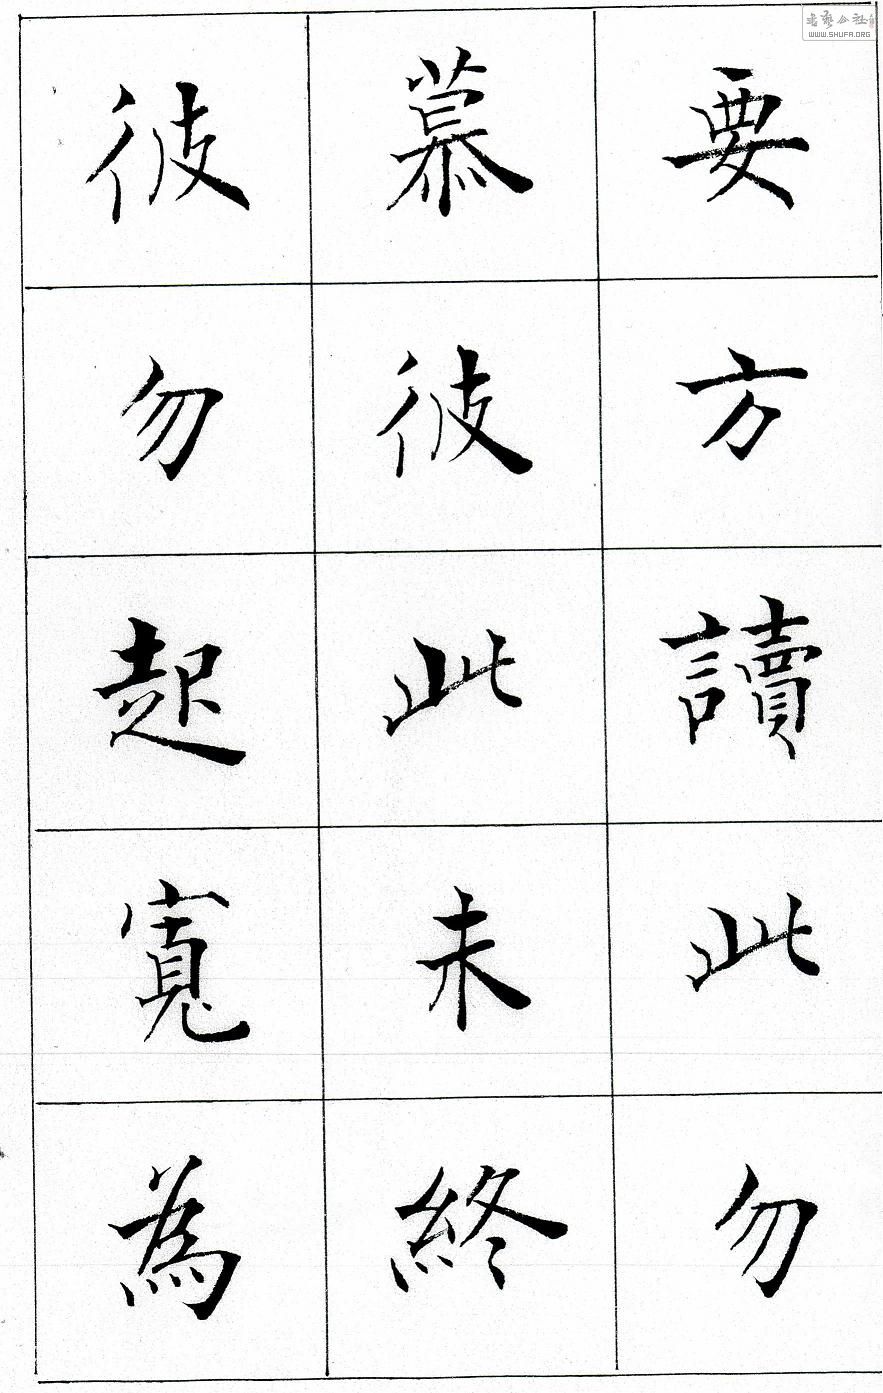 要方讀此勿
慕彼此未終
彼勿起寬為
WWW.SHUFA.ORG